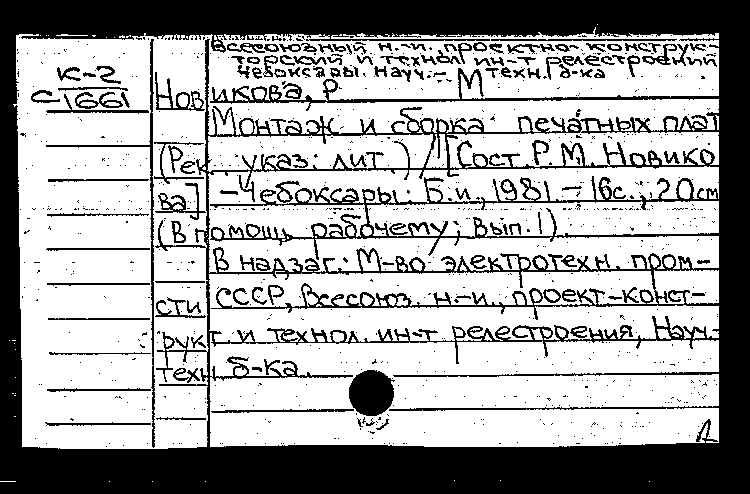 Всесоюзный н.-и. проектно-конструк-
торский и технол. ин-т релестроения
Чебоксары. Науч.-техн. б-ка
К-2
С-1661
Новикова, Р М
Монтаж и сборка печатных плат
(Рек. указ. лит.) / [Сост. Р. М. Новико
ва] - Чебоксары: Б.и., 1981 - 16с.; 20см
(В помощь рабочему; Вып. 1).
В надзаг.: М-во электротехн. пром-
сти СССР, Всесоюз. н.-и., проект-конст-
рукт. и технол. ин-т релестроения, Науч.-
техн. б-ка.